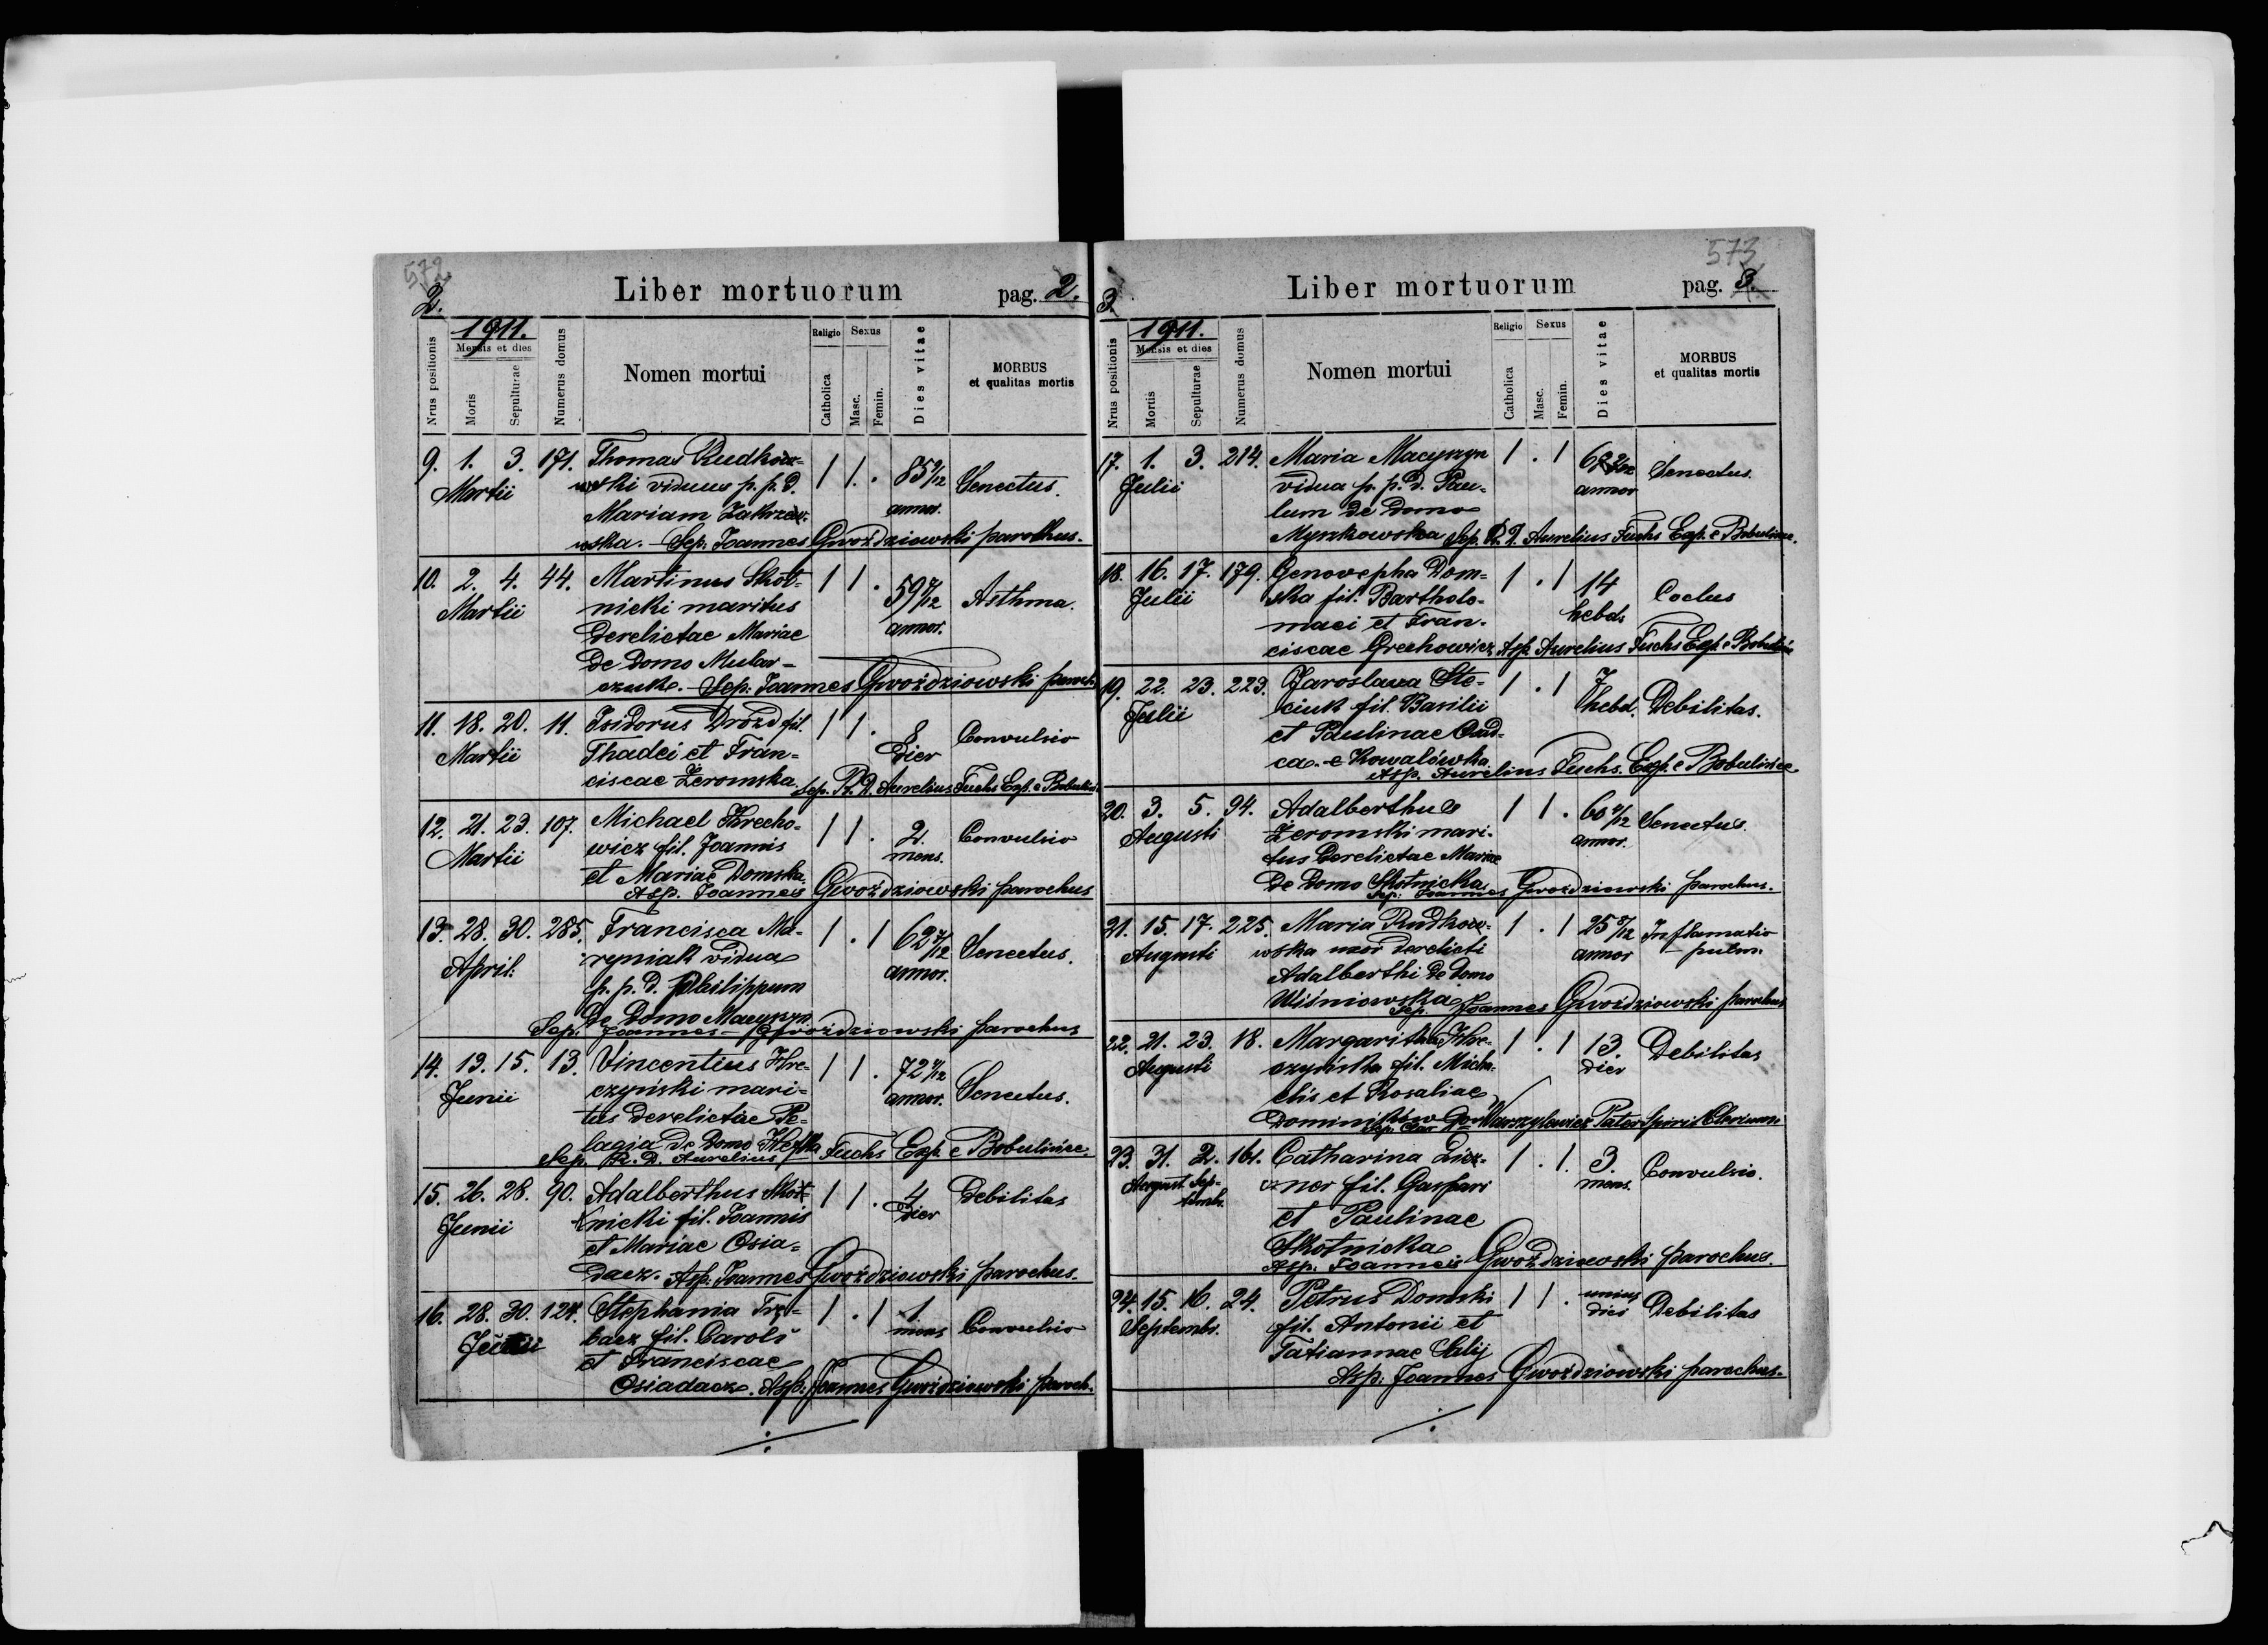 572
2.
Liber mortuorum
pag. 2.
1911.
Mensis et dies
Nrus positionis
Moris
Sepulturae
Numerus domus
Nomen mortui
Religio
Catholica
Sexus
Masc.
Femin.
Dies vitae
MORBUS
et qualitas mortis
9. 1. 3. 171. Thomas Rudkow- 1 1 . 85 Senectus.
Martii wski viduus p. p. d. annor.
Mariam Zakrzew-
wska. - Sep. Joannes Gwoździowski parochus.
10. 2. 4. 44. Martinus Skot- 1 1 . 59 Asthma.
Martii nicki maritus annor.
derelictae Mariae
de domo Mular-
czuk. - Sep: Joannes Gwoździowski paroch.
11. 18. 20. 11. Isidorus Drozd fil. 1 1 . 8 Convulsio
Martii Thadei et Fran- dier
ciscae Żeromska.
Sep. R. D. Aurelius Fuchs Exp. e Bobulińce
12. 21. 23. 107. Michael Hrecho- 1 1 . 2 Convulsio
Martii wicz fil. Joannis mens.
et Mariae Domska.
Asp. Joannes Gwoździowski parochus
13. 28. 30. 285. Francisca Ma- 1 . 1 62 Senectus.
April. ryniak vidua annor.
p. p. d. Philippum
de Domo Macyszyn
Sep. Joannes - Gwoździowski parochus
14. 13. 15. 13. Vincentius Hre- 1 1 . 72 Senectus.
Junii czyński mari- annor.
tus derelictae Pe-
lagia de Domo
Sep. R. D. Aurelius Fuchs Exp. e Bobulińce.
15. 26. 28. 90. Adalberthus Skot- 1 1 . 4 Debilitas
Junii nicki fil. Joannis dier
et Mariae Osia-
dacz. Asp. Joannes Gwoździowski parochus.
16. 28. 30. 124. Stephania Trę- 1 . 1 1 Convulsio
Junii bacz fil. Caroli mens
et Franciscae
Osiadacz. Asp: Joannes Gwoździowski paroch.
573
3.
Liber mortuorum
pag. 3.
1911.
Mensis et dies
Nrus positionis
Mortis
Sepulturae
Numerus domus
Nomen mortui
Religio
Catholica
Sexus
Masc.
Femin.
Dies vitae
MORBUS
et qualitas mortis
17. 1. 3. 214. Maria Macyszyn 1 . 1 Senectus.
Julii vidua p. p. d. Pau- annor
lum de domo
Myszkowska Sep. R. D. Aurelius Fuchs Exp. e Bobulince.
18. 16. 17. 179. Genovepha Dom- 1 . 1 14 Coclus
Julii ska fil. Bartholo- hebd.
maei et Fran-
ciscae Grechowicz Asp. Aurelius Fuchs Exp. e Bobulińce
19. 22. 23. 223. Jaroslava Ste- 1 . 1 7 Debilitas.
Julii ciuk fil. Basilii hebd.
et Paulinae
ca. e Kowalówka
Asp. Aurelius Fuchs. Exp. e Bobulińce
20. 3. 5. 94. Adalberthus 1 1 . 60 Senectus.
Augusti Żeromski mari- annor.
tus derelictae Mariae
de domo Skotnicka
Sep: Joannes Gwoździowski parochus.
21. 15. 17. 225. Maria Rudkow- 1 . 1 25 8/12 Inflamatio
Augusti wska uxor derelicti annor pulm.
Adalberthi de domo
Wiśniowska
Sep. Joannes Gwoździowski parochus
22. 21. 23. 18. Margaritha Hre- 1 . 1 13. Debilitas
Augusti czyńska fil. Micha- dier
elis et Rosaliae
Dominików
23. 31. 2. 161. Catharina 1 . 1. 3. Convulsio.
August. Sep- fil. Gaspari mens.
tembr. et Paulinae
Skotnicka
Asp: Joannes Gwoździowski parochus.
24. 15. 16. 24. Petrus Domski 1 1 . unius Debilitas
Septembr. fil. Antonii et diei
Tatiannae
Asp: Joannes Gwoździowski parochus.